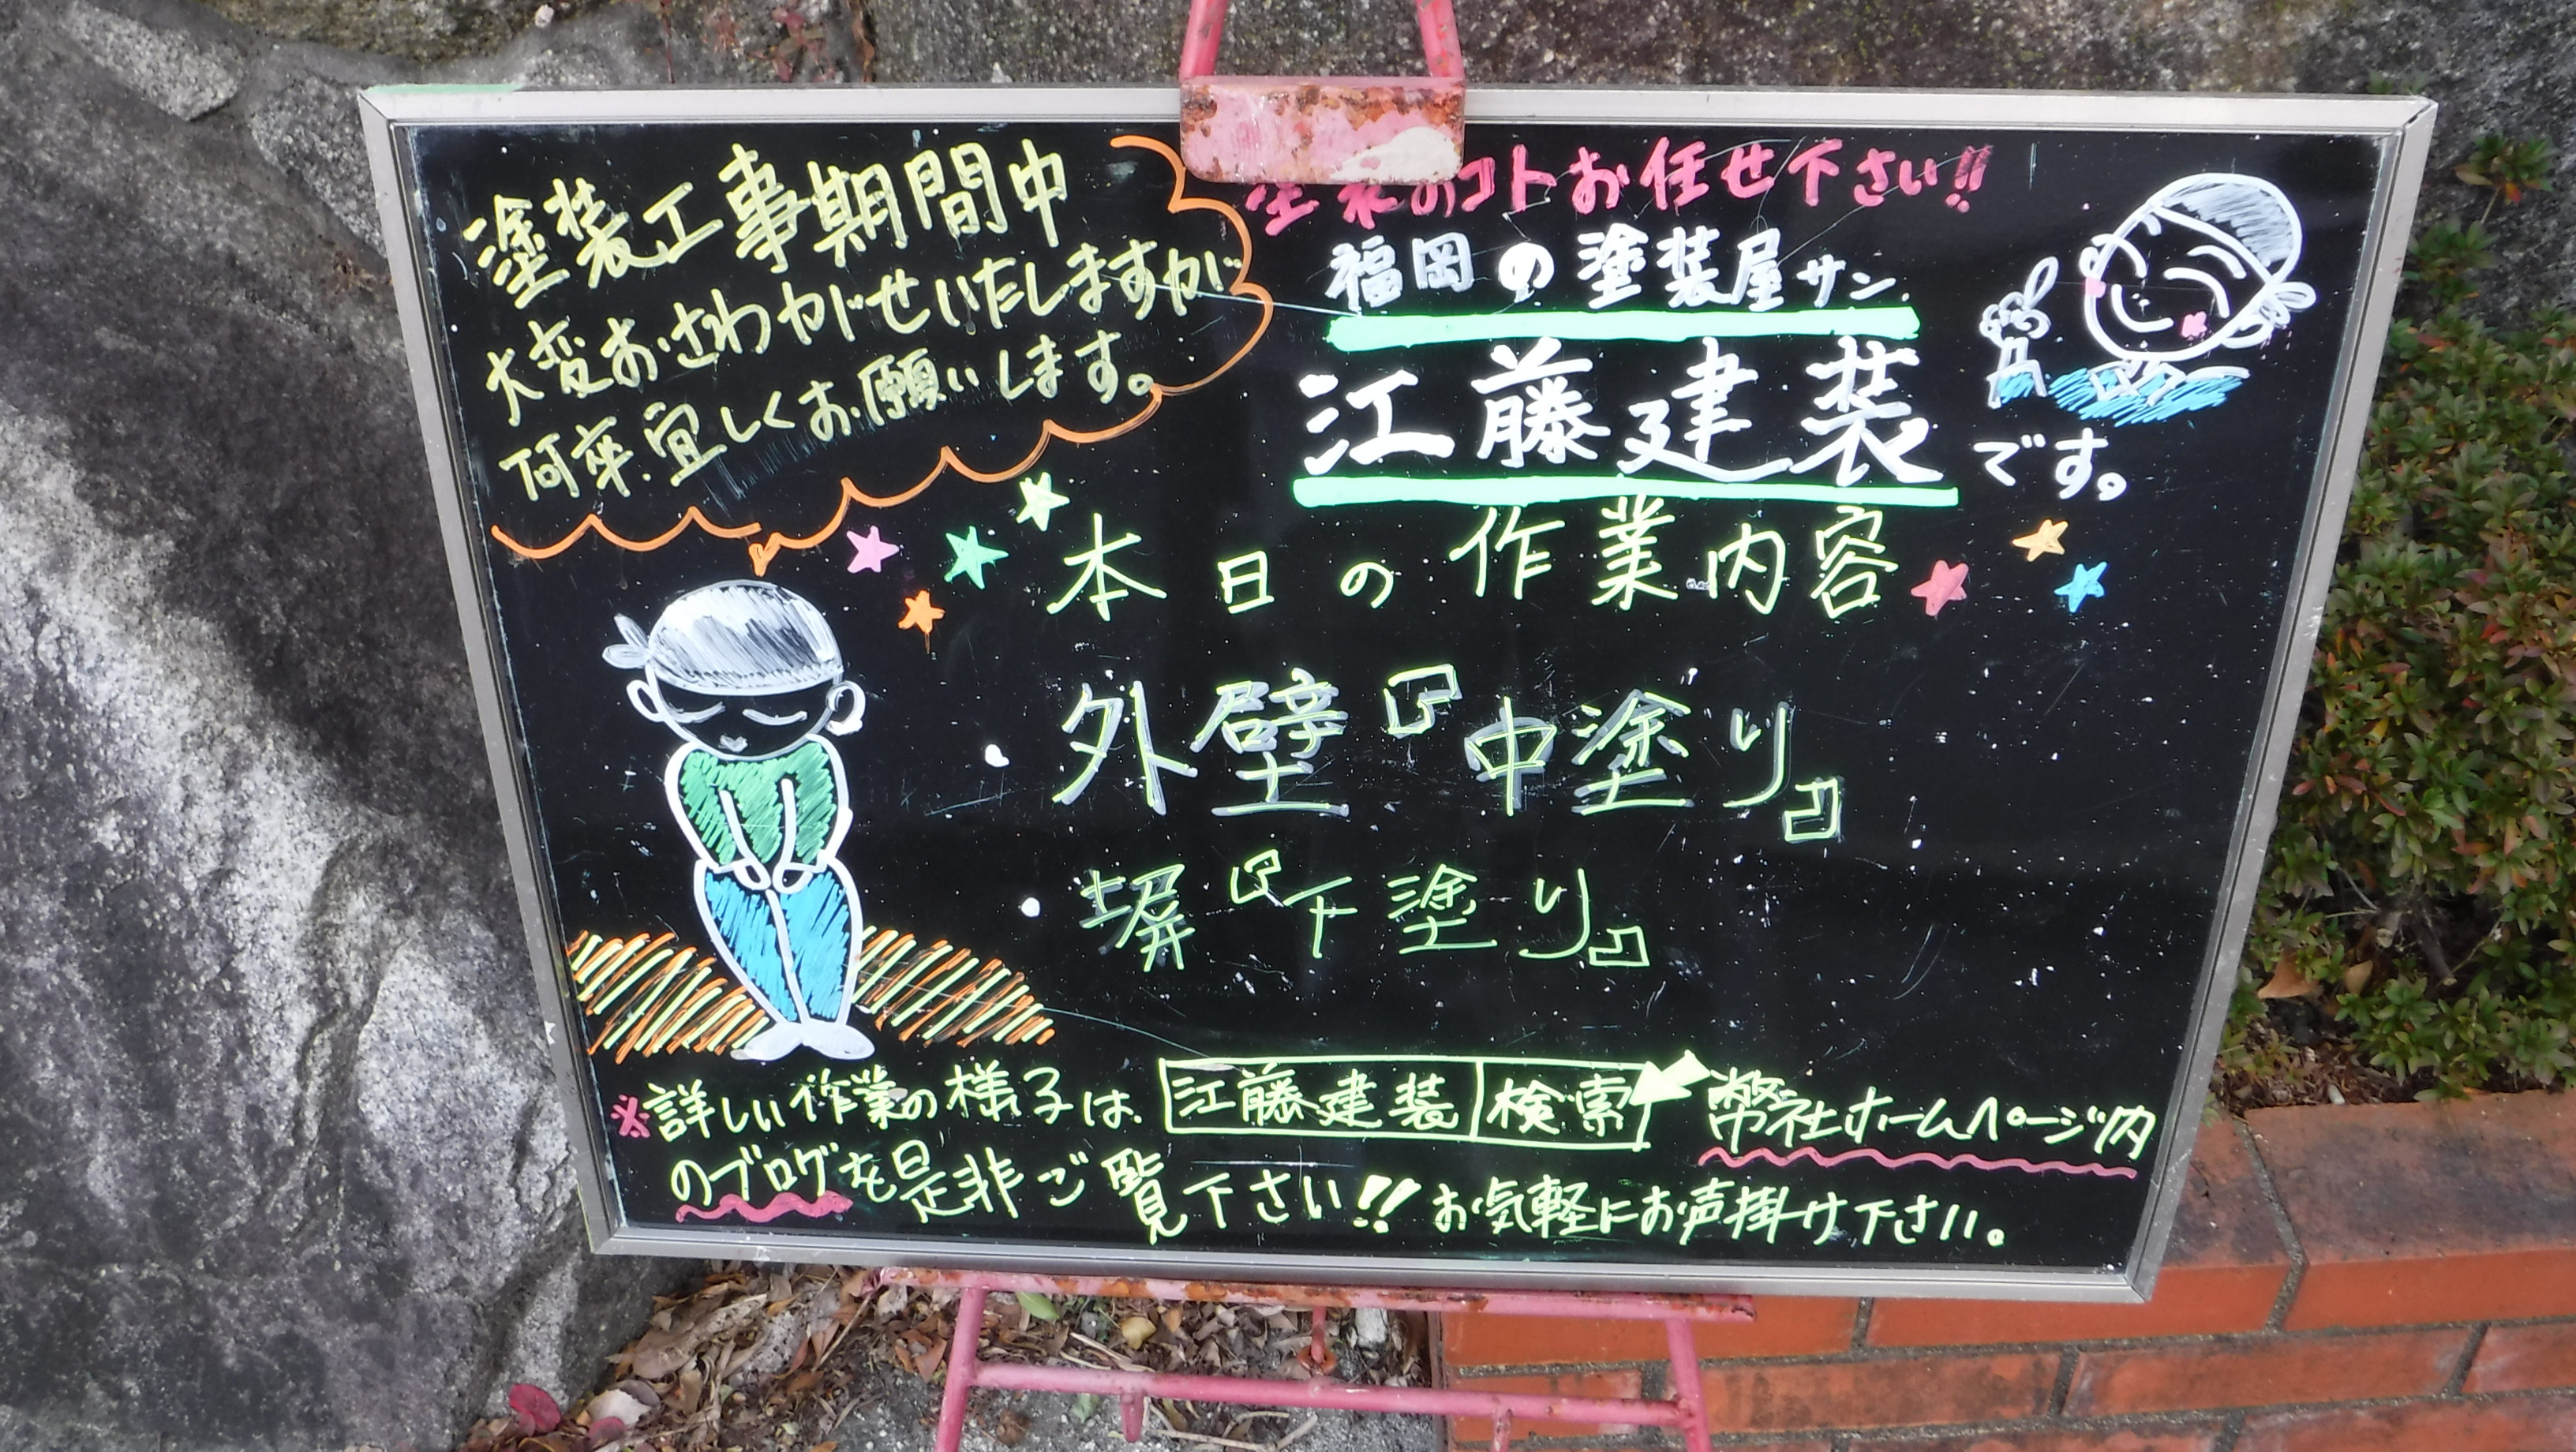 塗装工事期間中
大変おさわがせいたしますが
何卒宜しくお願いします。
塗装のコトお任せ下さい!!
福岡の塗装屋サン
江藤建装です。
本日の作業内容
・外壁『中塗り』
・塀『下塗り』
※詳しい作業の様子は 江藤建装 検索 弊社ホームページ内
のブログを是非ご覧下さい!! お気軽にお声掛け下さい。